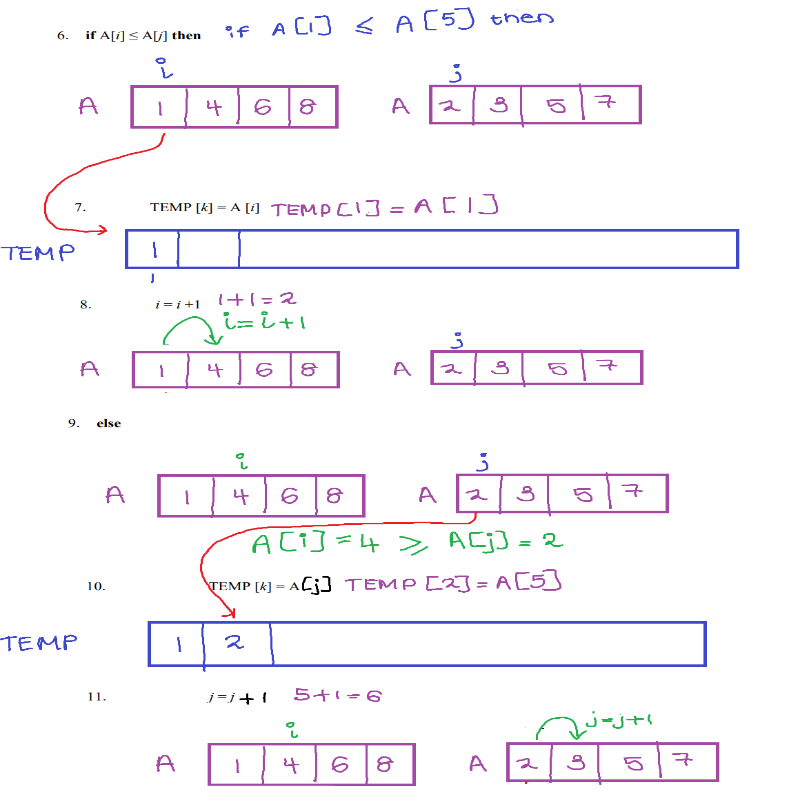 6. if A[i] ≤ A[j] then if A[1] ≤ A[5] then
i j
A 1 4 6 8 A 2 3 5 7
7. TEMP [k] = A [i] TEMP[1] = A[1]
TEMP 1
1
8. i = i +1 1+1=2
i=i+1
j
A 1 4 6 8 A 2 3 5 7
9. else
i j
A 1 4 6 8 A 2 3 5 7
A[i]=4 ⩾ A[j]=2
10. TEMP [k] = A[j] TEMP[2]=A[5]
TEMP 1 2
11. j = j + 1 5+1=6
i j=j+1
A 1 4 6 8 A 2 3 5 7